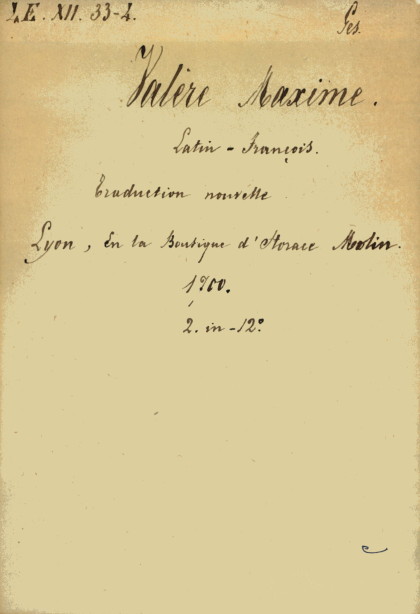 LE. XII. 33-4.
Ges.
Valère Maxime.
Latin - François.
Traduction nouvelle
Lyon, En la Boutique d'Horace Molin.
1700.
2. in-12º